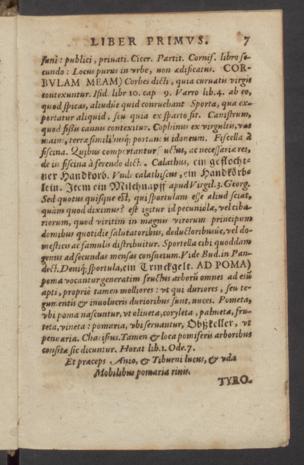 LIBER PRIMVS. 7
sunt: publici, privati. Cicer. Partit. Cornif. libro se-
cundo: Locus purus in vrbe, non ædificatus. COR-
BVLAM MEAM) Corbes dicti, quia curuatis virgis
contexuntur. Isid. libr 10. cap 9. Varro lib. 4. ab eo,
quod spicas, aliudúe quid corruebant Sporta, quæ ex-
portatur aliquid, seu quia ex sparto sit. Canistrum,
quod fissis cannis contexitur. Cophinus ex virgultis,
idoneum. Fiscella à
fiscina. Quibus comportantur
de in fiscina à ferendo dict. Calathus, ein geflochte-
ner Handkorb. Vnde calathiscus, ein Handkörbs
lein. Item ein Milchnapff apud Virgil. 3. Georg.
Sed quotus quisque est, qui sportulam esse aliud sciat,
quàm quod diximus? est igitur id pecuniolæ, vel ciba-
riorum, quod viritim in magnis virorum principum
domibus quotidie salutatoribus, deductoribusúe, vel do-
mesticis ac famulis distribuitur. Sportella cibi quoddam
genus ad secundas mensas consuetum. Vide Bud. in Pan-
dect. Deniq; sportula, ein Trinckgelt. AD POMA)
poma vocantur generatim fructus arborū omnes ad eiū
apti, propriè tamen molliores: vt qui duriores, seu te-
gumentis & inuolucris durioribus sunt, nuces. Pometa,
vbi poma nascuntur, vt oliueta, coryleta, palmeta, fru-
teta, vineta: pomaria, vbi seruantur, Obßkeller, vt
penuaria. Charisius. Tamen & loca pomiferis arboribus
consita sic dicuntur. Horat lib. 1. Ode. 7.
Et præceps Anio, & Tiburni lucus, & vda
Mobilibus pomaria riuis.
TYRO.